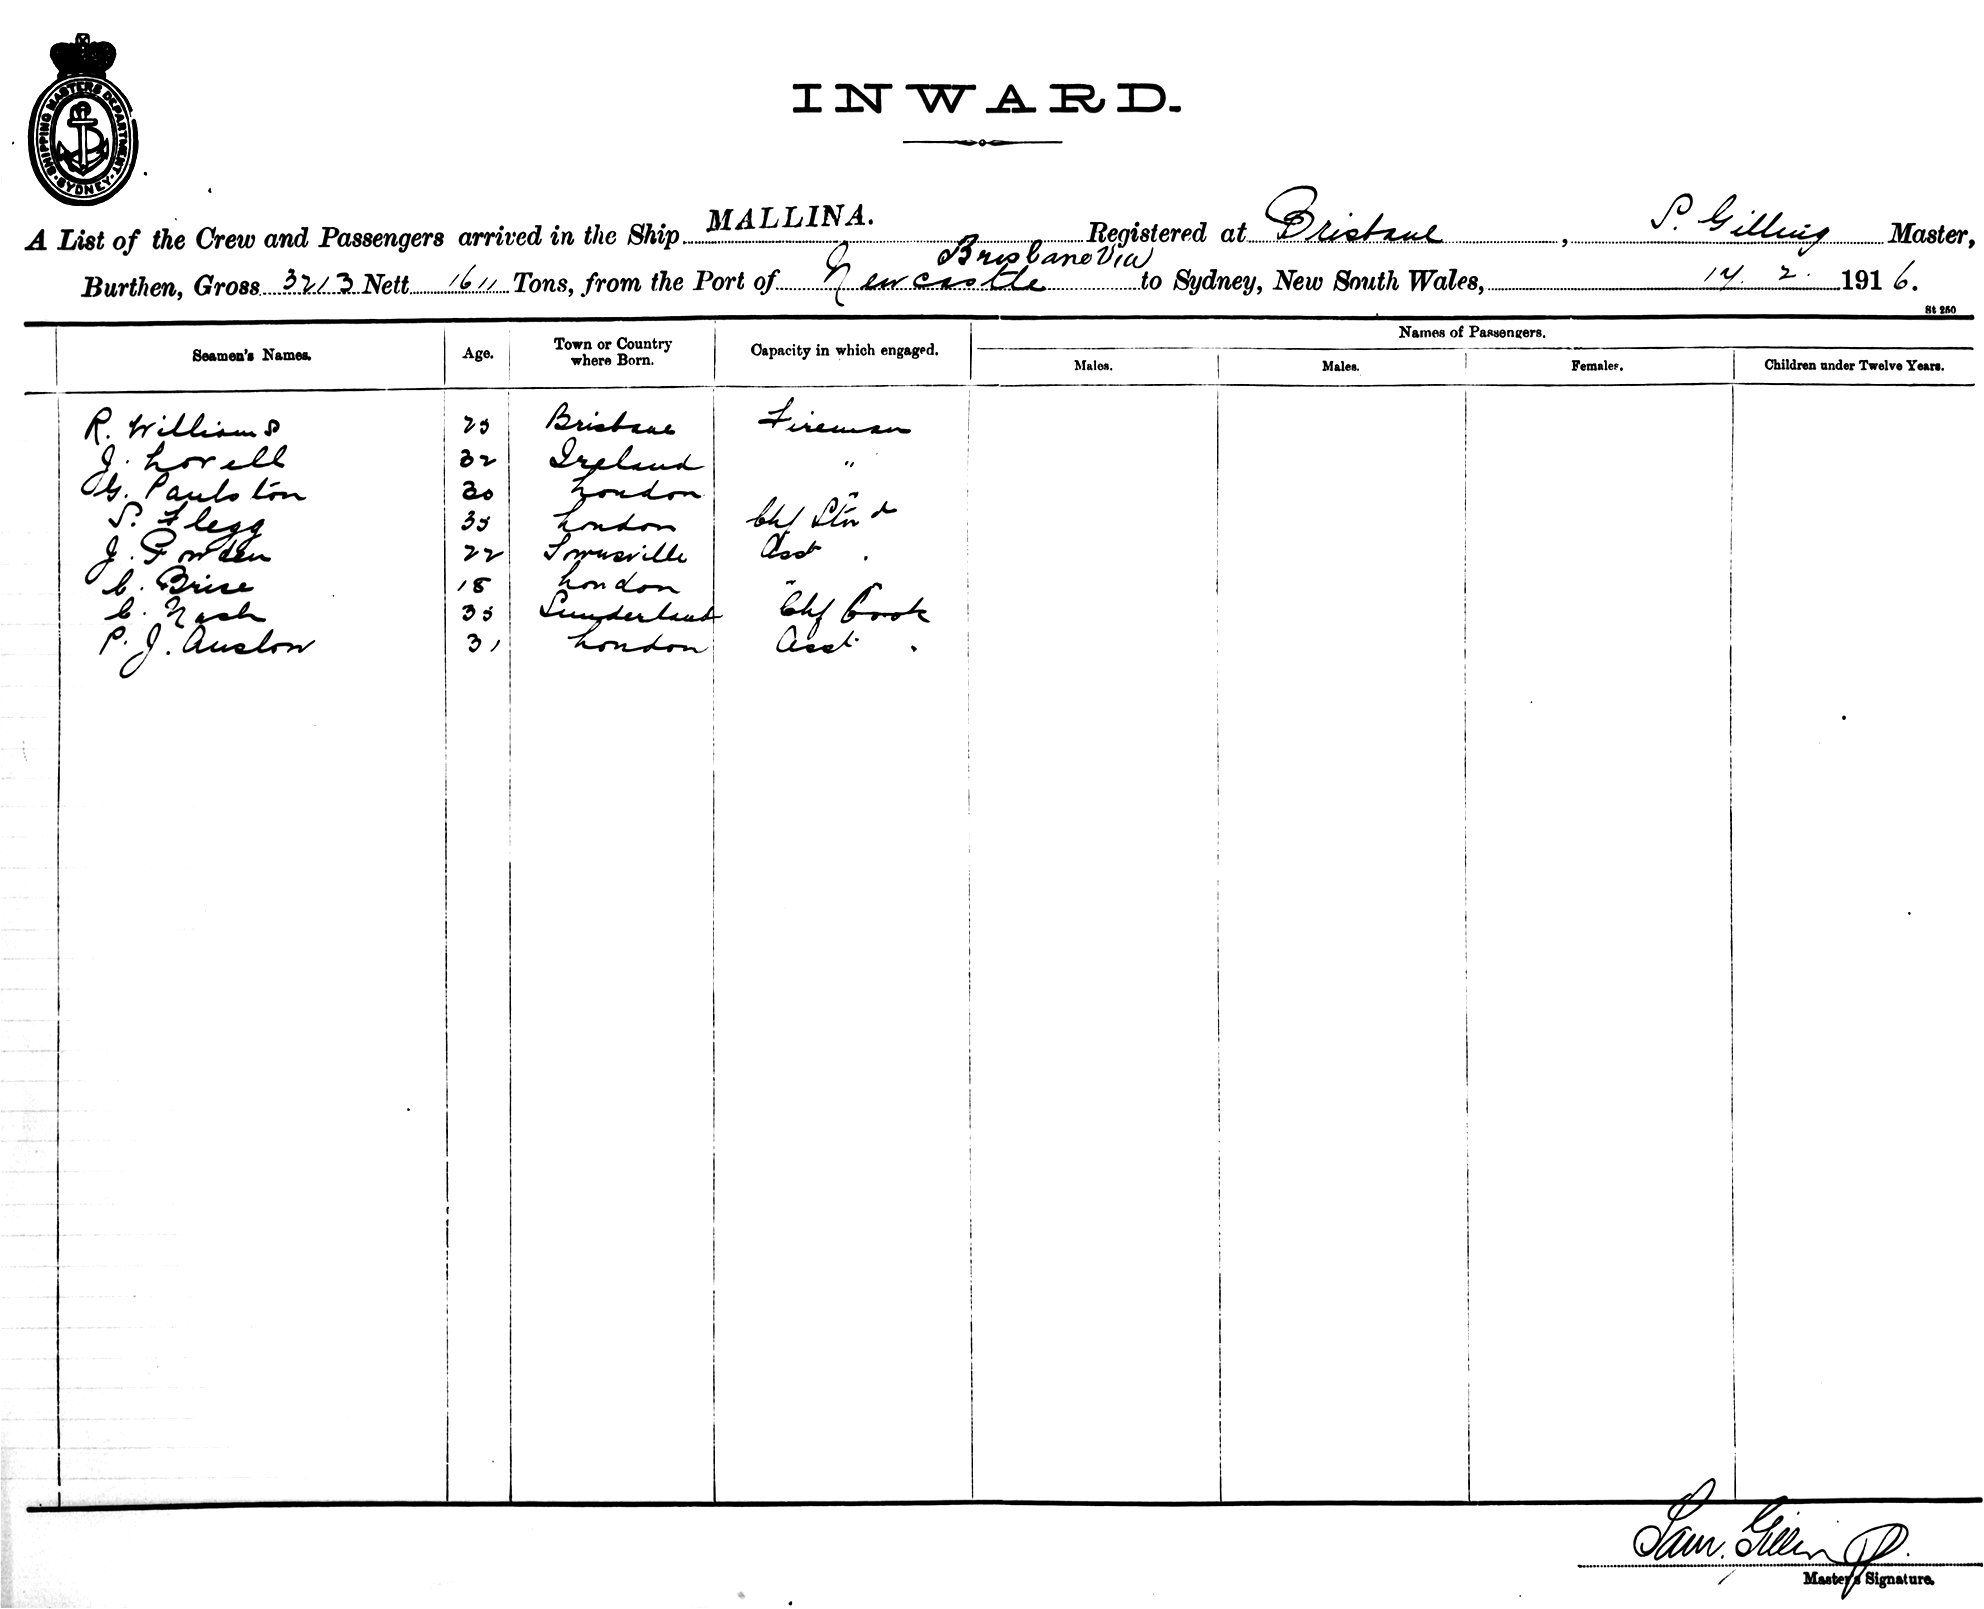 SHIPPING MASTERS DEPARTMENT
SYDNEY
INWARD.
A List of the Crew and Passengers arrived in the Ship MALLINA. Registered at Brisbane, S. Gilling Master,
Brisbane Via
Burthen, Gross 3213 Nett 1611 Tons, from the Port of Newcastle to Sydney, New South Wales, 14. 2. 1916.
St 250
Names of Passengers.
Seamen's Names. Age. Town or Country where Born. Capacity in which engaged. Males. Males. Females. Children under Twelve Years.
R. Williams 25 Brisbane Fireman
J. Lovell 32 Ireland "
G. Paulston 30 London "
S. Flegg 35 London Chf Stwd
J. Fowden 22 Townsville Asst .
C. Brise 18 London "
C. Nash 35 Sunderland Chf Cook
P. J. Auslow 31 London Asst .
Sam. Gilling.
Master's Signature.